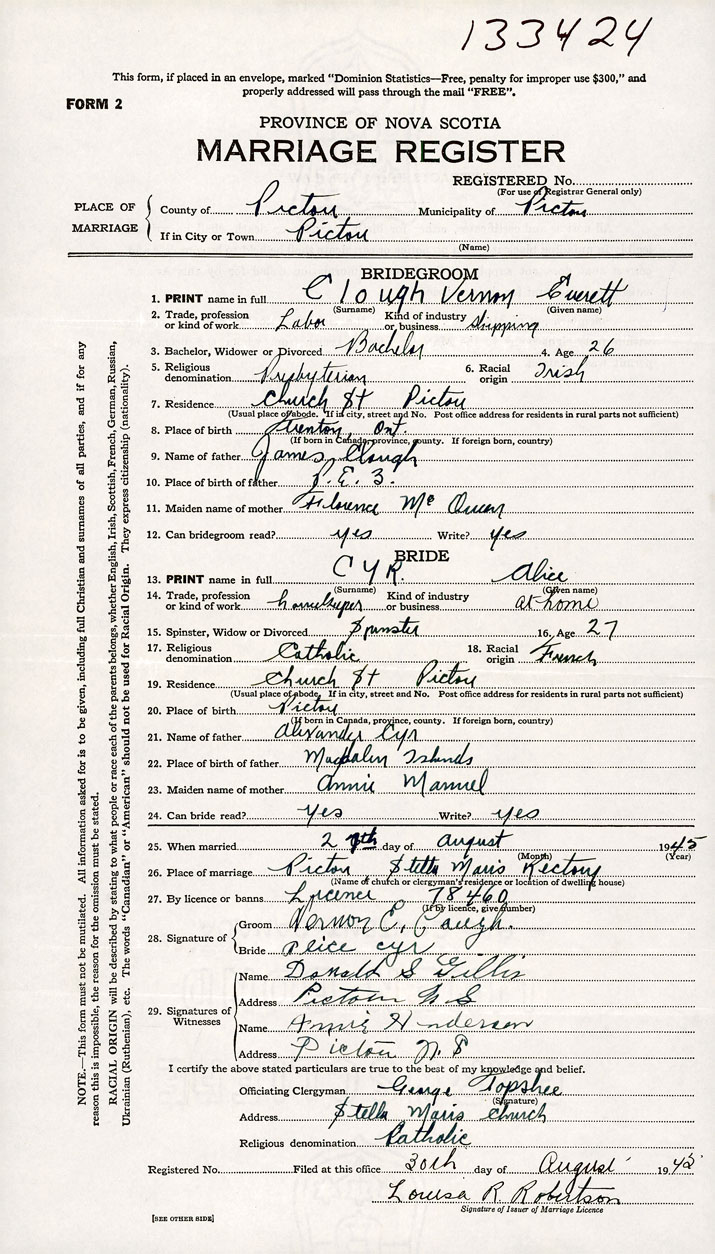 133424
This form, if placed in an envelope, marked "Dominion Statistics—Free, penalty for improper use $300," and
properly addressed will pass through the mail "FREE".
FORM 2
PROVINCE OF NOVA SCOTIA
MARRIAGE REGISTER
REGISTERED No.
(For use of Registrar General only)
PLACE OF MARRIAGE
County of Pictou Municipality of Pictou
If in City or Town Pictou
(Name)
BRIDEGROOM
1. PRINT name in full Clough Vernon Everett
(Surname) (Given name)
2. Trade, profession or kind of work Labor Kind of industry or business Shipping
3. Bachelor, Widower or Divorced Bachelor 4. Age 26
5. Religious denomination Presbyterian 6. Racial origin Irish
7. Residence Church St Pictou
(Usual place of abode. If in city, street and No. Post office address for residents in rural parts not sufficient)
8. Place of birth Trenton, Ont.
(If born in Canada, province, county. If foreign born, country)
9. Name of father James Clough
10. Place of birth of father P. E. I.
11. Maiden name of mother Florence Mc Queen
12. Can bridegroom read? yes Write? yes
BRIDE
13. PRINT name in full CYR. Alice
(Surname) (Given name)
14. Trade, profession or kind of work Kind of industry or business at home
15. Spinster, Widow or Divorced Spinster 16. Age 27
17. Religious denomination Catholic 18. Racial origin French
19. Residence Church St Pictou
(Usual place of abode. If in city, street and No. Post office address for residents in rural parts not sufficient)
20. Place of birth Pictou
(If born in Canada, province, county. If foreign born, country)
21. Name of father Alexander Cyr
22. Place of birth of father Magdalin Islands
23. Maiden name of mother Annie Manuel
24. Can bride read? yes Write? yes
25. When married day of August 1945
(Month) (Year)
26. Place of marriage Pictou Stella Maris Rectory
(Name of church or clergyman's residence or location of dwelling house)
27. By licence or banns Licence 78460
(If by licence, give number)
28. Signature of
Groom Vernon E. Clough.
Bride Alice Cyr
29. Signatures of Witnesses
Name Donald S Gillis
Address Pictou N S
Name Annie Henderson
Address Pictou N. S
I certify the above stated particulars are true to the best of my knowledge and belief.
Officiating Clergyman George Topshee
(Signature)
Address Stella Maris Church
Religious denomination Catholic
Registered No. Filed at this office 30th day of August 1945
Louisa R Robertson
Signature of Issuer of Marriage Licence
[SEE OTHER SIDE]
NOTE.—This form must not be mutilated. All information asked for is to be given, including full Christian and surnames of all parties, and if for any
reason this is impossible, the reason for the omission must be stated.
RACIAL ORIGIN will be described by stating to what people or race each of the parents belongs, whether English, Irish, Scottish, French, German, Russian,
Ukrainian (Ruthenian), etc. The words "Canadian" or "American" should not be used for Racial Origin. They express citizenship (nationality).